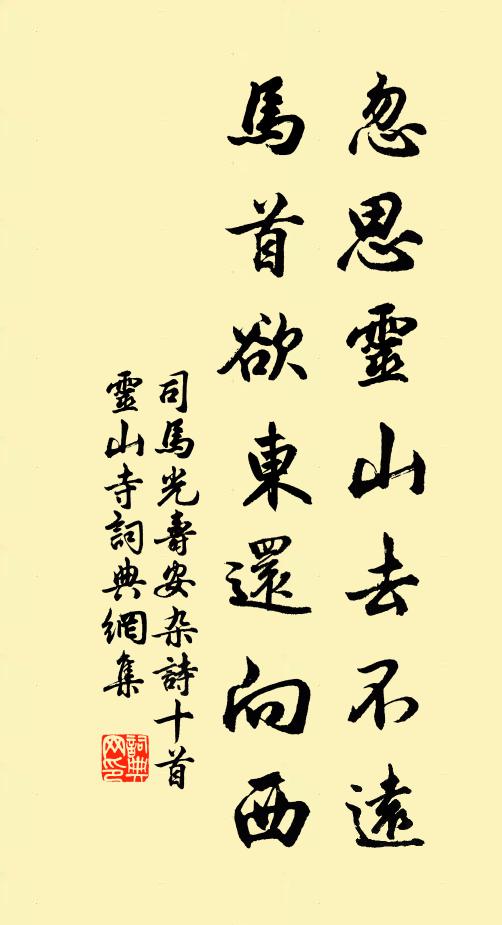 忽思靈山去不遠
馬首欲東還向西
司馬光壽安杂詩十首
靈山寺詞典網集
詞典网印